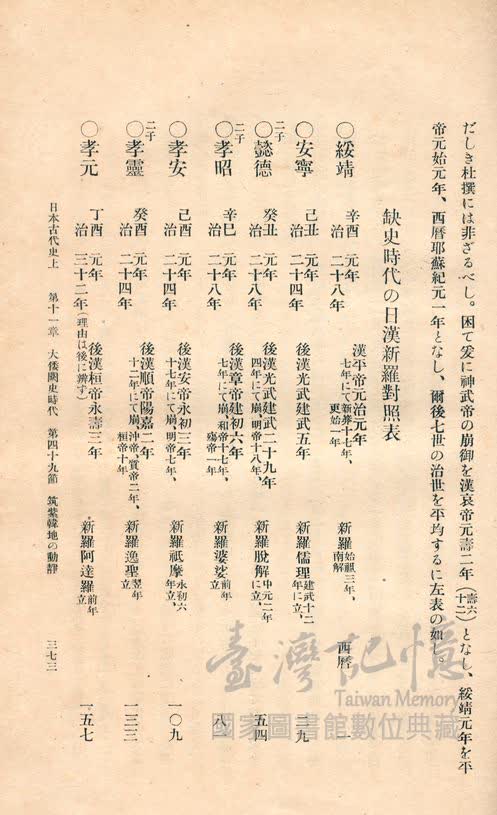 だしき杜撰には非ざるべし。因て爰に神武帝の崩御を漢哀帝元壽二年（壽六十二）となし、綏靖元年を平
帝元始元年、西曆耶蘇紀元一年となし、爾後七世の治世を平均するに左表の如し。
缺史時代の日漢新羅對照表
〇綏靖 辛酉元年 治二十八年 漢平帝元治元年 七年にて新莽十七年、更始一年 新羅 始祖三年、南解 西曆 一
〇安寧 己丑元年 治二十四年 後漢光武建武五年 新羅儒理 建武十二年に立、 二九
二子
〇懿德 癸丑元年 治二十八年 後漢光武建武二十九年 四年にて崩、明帝十八年、 新羅脫解 中元二年に立、 五四
二子
〇孝昭 辛巳元年 治二十八年 後漢章帝建初六年 七年にて崩、和帝十七年、殤帝一年 新羅婆娑 前年立 八
〇孝安 己酉元年 治二十四年 後漢安帝永初三年 十七年にて崩、明帝七年、 新羅祇摩 永初六年立 一〇九
二子
〇孝靈 癸酉元年 治二十四年 後漢順帝陽嘉二年 十二年にて崩、沖帝、質帝二年、桓帝十年、 新羅逸聖 翌年立 一三三
〇孝元 丁酉元年 治三十二年（理由は後に辨ず） 後漢桓帝永壽三年 新羅阿達羅 前年立 一五七
日本古代史上 第十一章 大倭闕史時代 第四十九節 筑紫韓地の動靜 三七三
臺灣記憶
Taiwan Memory
國家圖書館數位典藏